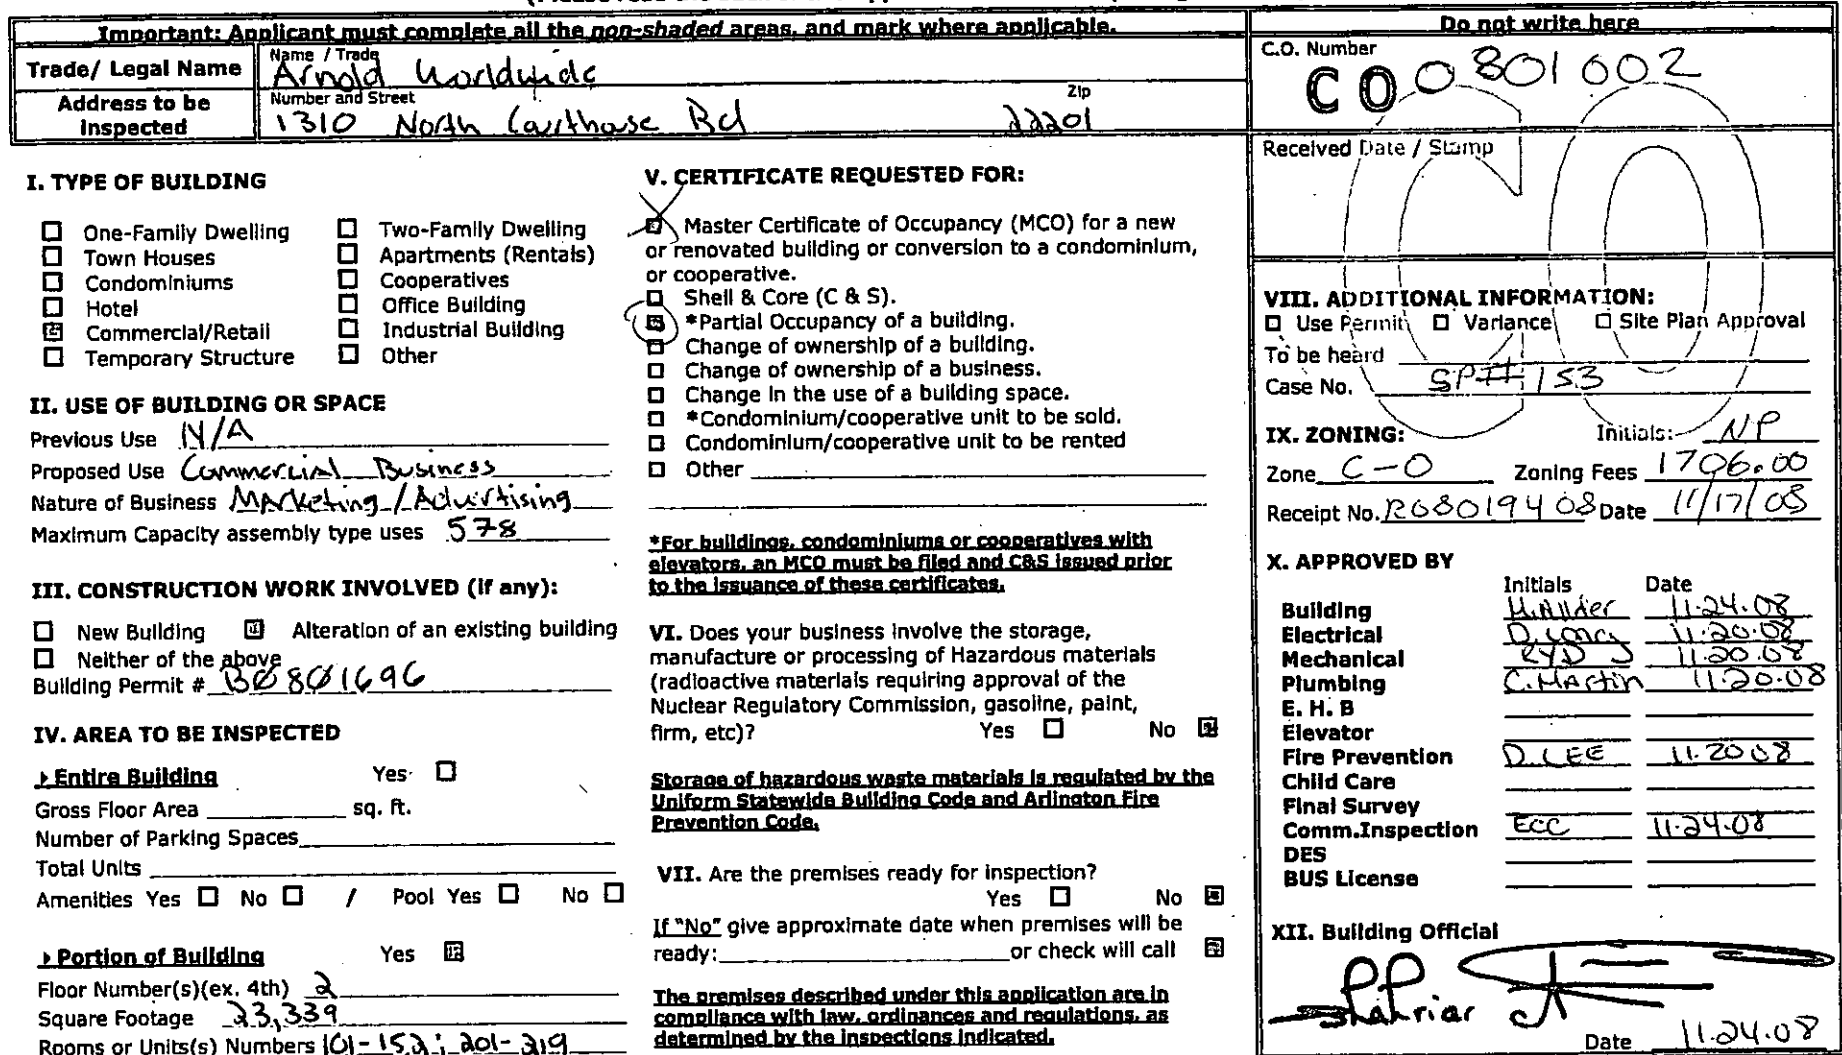 Important: Applicant must complete all the non-shaded areas, and mark where applicable.
Do not write here
Trade/ Legal Name
Name / Trade
Arnold Worldwide
Address to be Inspected
Number and Street
Zip
1310 North Courthouse Rd 22201
C.O. Number
CO 0801002
Received Date / Stamp
CO
I. TYPE OF BUILDING
One-Family Dwelling
Two-Family Dwelling
Town Houses
Apartments (Rentals)
Condominiums
Cooperatives
Hotel
Office Building
Commercial/Retail
Industrial Building
Temporary Structure
Other
II. USE OF BUILDING OR SPACE
Previous Use N/A
Proposed Use Commercial Business
Nature of Business Marketing/Advertising
Maximum Capacity assembly type uses 578
III. CONSTRUCTION WORK INVOLVED (if any):
New Building
Alteration of an existing building
Neither of the above
Building Permit # B0801696
IV. AREA TO BE INSPECTED
Entire Building Yes
Gross Floor Area sq. ft.
Number of Parking Spaces
Total Units
Amenities Yes No / Pool Yes No
Portion of Building Yes
Floor Number(s)(ex. 4th) 2
Square Footage 23,339
Rooms or Units(s) Numbers 101-152; 201-219
V. CERTIFICATE REQUESTED FOR:
Master Certificate of Occupancy (MCO) for a new
or renovated building or conversion to a condominium,
or cooperative.
Shell & Core (C & S).
*Partial Occupancy of a building.
Change of ownership of a building.
Change of ownership of a business.
Change in the use of a building space.
*Condominium/cooperative unit to be sold.
Condominium/cooperative unit to be rented
Other
*For buildings, condominiums or cooperatives with
elevators, an MCO must be filed and C&S issued prior
to the issuance of these certificates.
VI. Does your business involve the storage,
manufacture or processing of Hazardous materials
(radioactive materials requiring approval of the
Nuclear Regulatory Commission, gasoline, paint,
firm, etc)? Yes No
Storage of hazardous waste materials is regulated by the
Uniform Statewide Building Code and Arlington Fire
Prevention Code.
VII. Are the premises ready for inspection?
Yes No
If "No" give approximate date when premises will be
ready: or check will call
The premises described under this application are in
compliance with law, ordinances and regulations, as
determined by the inspections indicated.
VIII. ADDITIONAL INFORMATION:
Use Permit Variance Site Plan Approval
To be heard
Case No. SP#153
IX. ZONING: Initials: NP
Zone C-O Zoning Fees 1706.00
Receipt No. R08019408 Date 11/17/08
X. APPROVED BY
Initials Date
Building 11.24.08
Electrical D. Long 11.20.08
Mechanical 11.20.08
Plumbing C. Martin 11.20.08
E. H. B
Elevator
Fire Prevention D. LEE 11.20 08
Child Care
Final Survey
Comm.Inspection ECC 11.24.08
DES
BUS License
XII. Building Official
Shahriar
Date 11.24.08